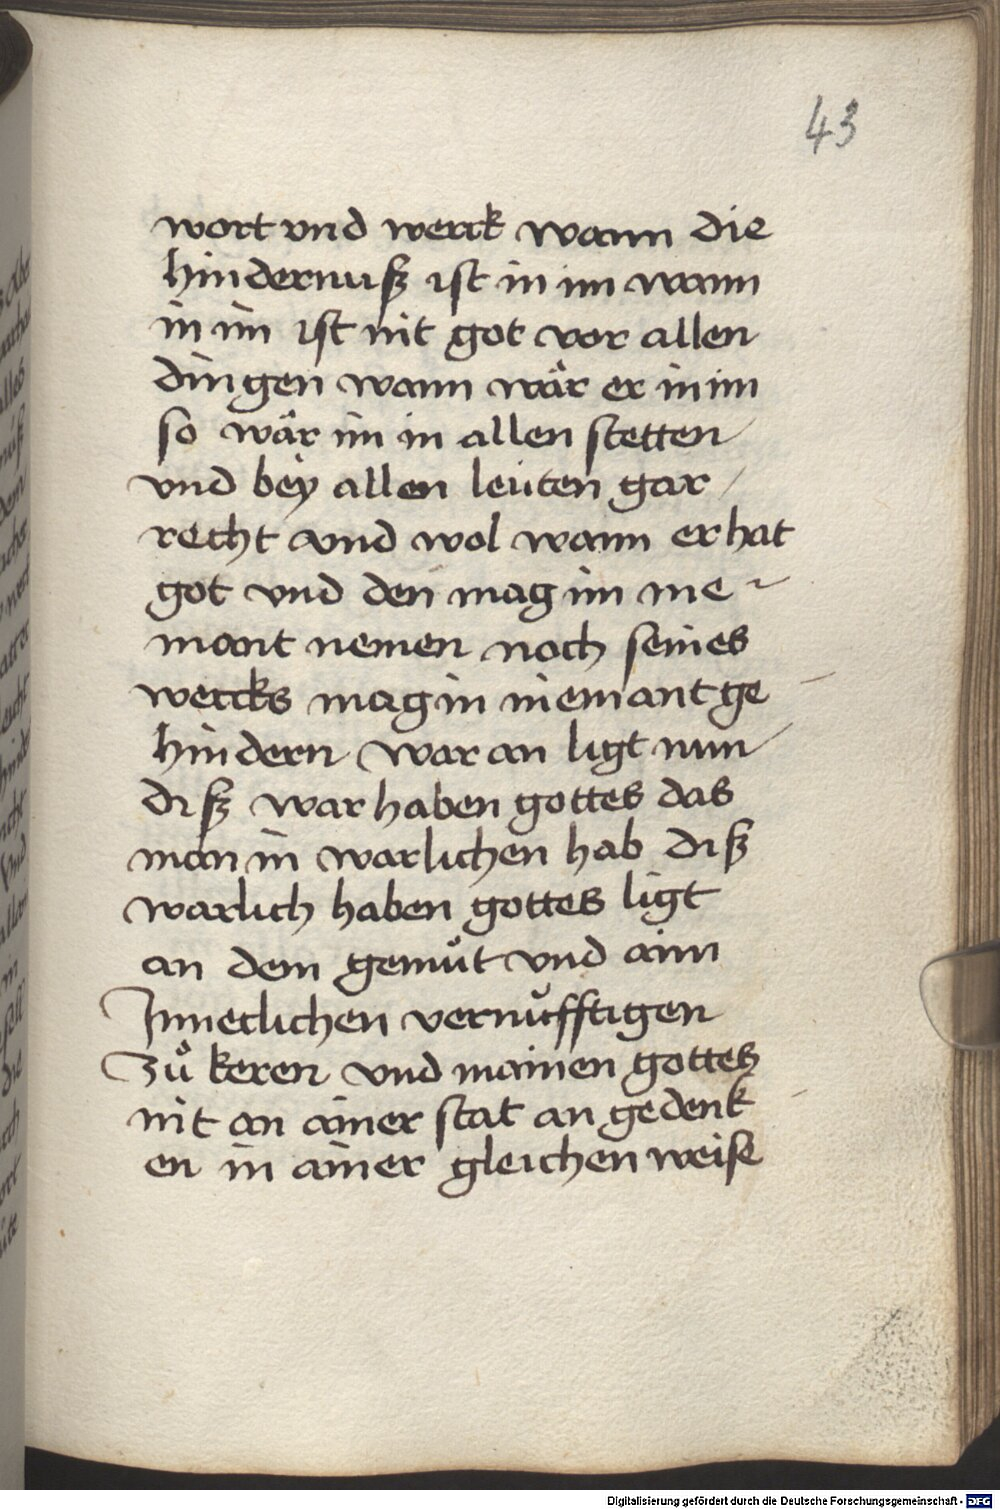 43
wort vnd werck wann die
hindernuß ist in im wann
in im ist nit got vor allen
dingen wann wår er in im
so wår im in allen stetten
vnd beÿ allen leüten gar
recht vnd wol wann er hat
got vnd den mag im nie-
mant nemen noch seines
wercks mag in niemant ge
hindern war an ligt nun
diß war haben gottes das
man in warlichen hab diß
warlich haben gottes ligt
an dem gemůt vnd ainn
Innerlichen vernůfftigen
zů keren vnd mainen gottes
nit an ainer stat an gedenk
en in ainer gleichen weise
Digitalisierung gefördert durch die Deutsche Forschungsgemeinschaft - DFG